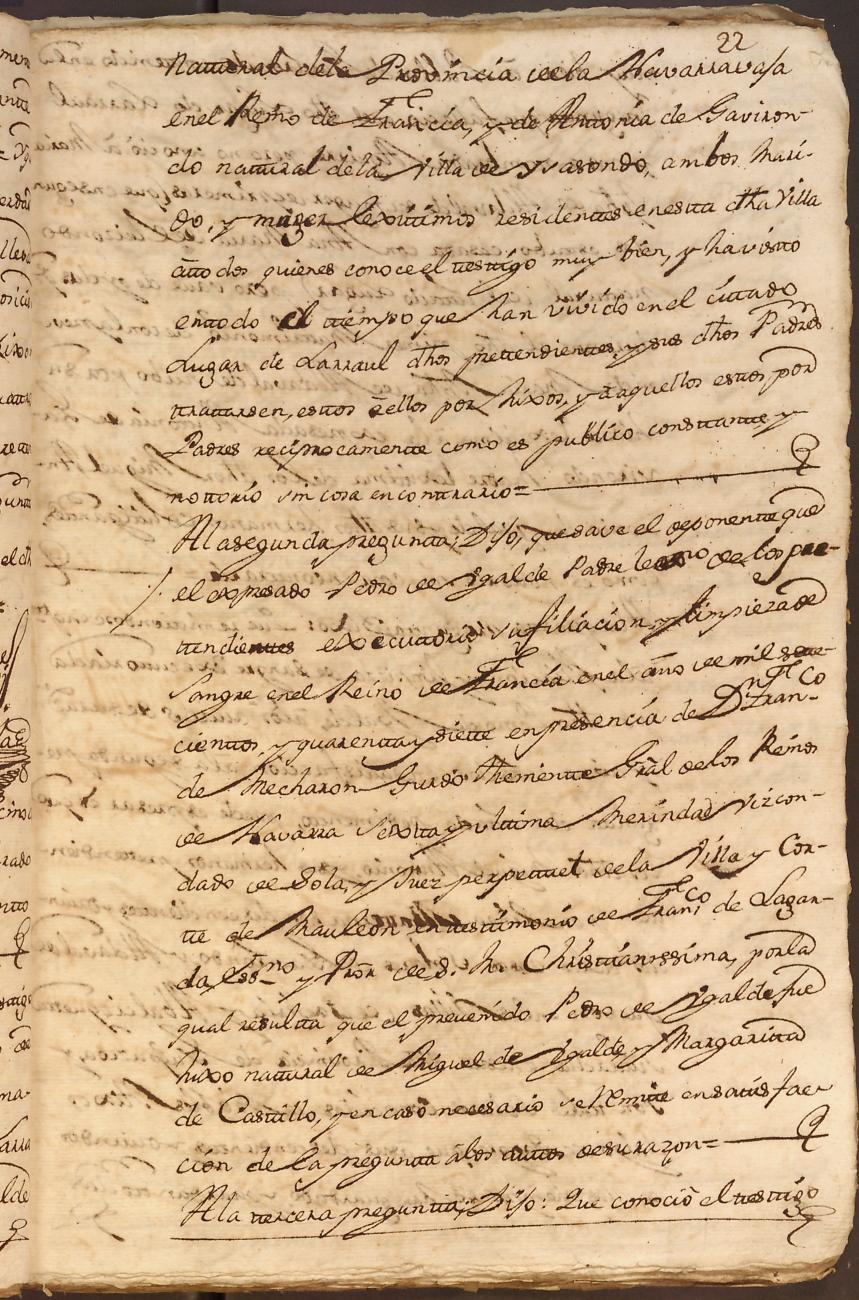 22
natural dela Provincia dela Navarravaja
enel Reino de Francia, y de Antonia de Gaviron-
do natural dela Villa de Ysasondo, ambos mari-
do, y muger lexitimos residentes enesta dha Villa
a todos quienes conoce el testigo muy bien, y ha visto
entodo el tiempo que han vivido en el cittado
Lugar de Larraul dhos prettendientes, y sus dhos Padres
trattarsen, estos a ellos por hixos, y aquellos estos por
Padres reciprocamente como es publico constante y
nottorio sin cosa en contrario=
A la segunda pregunta, Dijo, que save el deponente que
el expresado Pedro de Ygalde Padre lexmo de los pre-
tendientes executorió su filiacion, y limpieza de
Sangre en el Reino de Francia en el año de mil sete-
cientos, y quarenta y siette en presencia de Dn Franco
de Mecharon Gurdo Theniente Gral de los Reinos
de Navarra Sexta y ultima Merindad Vizcon-
dado de Sola, y Juez perpetuo dela Villa y Cor-
te de Mauleon en testimonio de Franco de Lagar-
da Essno y Pror de S. M. Christianissima, por la
qual resulta que el prevenido Pedro de Ygalde fue
hixo natural de Miguel de Ygalde, y Margarita
de Castillo, y en caso necesario se remite en satisfac-
ción de la pregunta a los autos de su razon=
A la tercera pregunta, Dijo: Que conoció el testigo